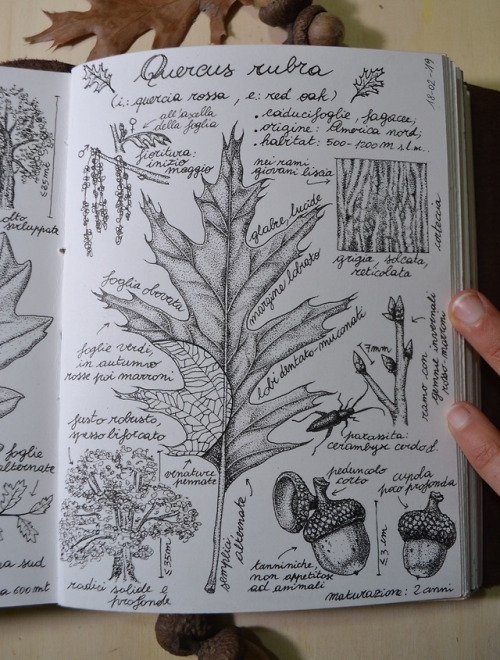 Quercus rubra
18-02-19
(i: quercia rossa, e: red oak)
• caducifoglie, fagacee;
• origine: America nord;
• habitat: 500-1200m s.l.m.
all'ascella
della foglia
♀
♂
fioritura:
inizio
maggio
nei rami
giovani liscia
corteccia
grigia, solcata,
reticolata
glabre, lucide
margine lobato
lobi dentato-mucronati
foglia obovata
foglie verdi,
in autunno
rosse poi marroni
7mm
ramo con
gemme invernali
rosso-marroni
parassita:
cerambyx cerdo
fusto robusto,
spesso biforcato
venature
pennate
semplici, alternate
≤35mt
radici solide e
profonde
peduncolo
corto
cupola
poco profonda
≤3cm
tanniniche,
non appetitose
ad animali
maturazione: 2 anni
≤25mt
molto
sviluppate
foglie
alternate
sud
600mt